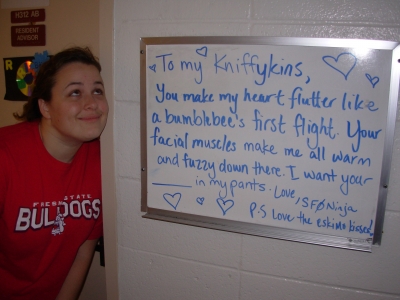 9012 AB
RESIDENT
ADVISOR
R
FRESNO STATE
BULLDOGS
To my Kniffykins,
You make my heart flutter like
a bumblebee's first flight. Your
facial muscles make me all warm
and fuzzy down there. I want your
______ in my pants. Love,
SFØ Ninja
P.S Love the eskimo kisses!